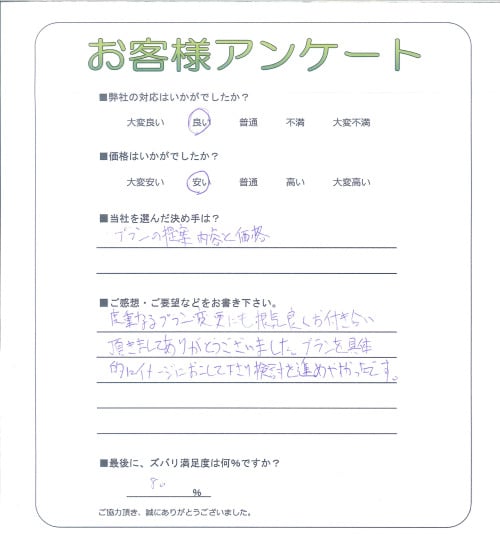 お客様アンケート
■弊社の対応はいかがでしたか？
大変良い 良い 普通 不満 大変不満
■価格はいかがでしたか？
大変安い 安い 普通 高い 大変高い
■当社を選んだ決め手は？
プランの提案内容と価格
■ご感想・ご要望などをお書き下さい。
度重なるプラン変更にも根気良くお付き合い
頂きましてありがとうございました。プランを具体
的にイメージにおこして下さり検討を進めやすかったです。
■最後に、ズバリ満足度は何%ですか？
80 %
ご協力頂き、誠にありがとうございました。